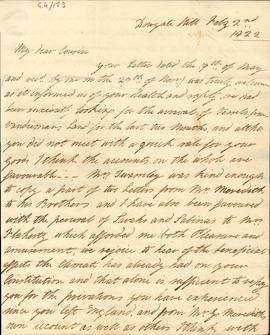 G4/153
Dowgate Hill Feby 2nd
1822
My dear Cousin
your Letter dated the 9th of May
and recd. by me on the 20th of Novr. was truly welcome
as it informed us of your health and safety, we had
been anxiously looking for the arrival of Vessels from
Vandiemans Land for the last two Months, and altho
you did not meet with a quick sale for your
goods I think the accounts on the whole are
favourable — Mrs. was kind enough
to copy a part of two Letters from Mr. Meredith
to his Brothers and I have also been favoured
with the perusal of Sarahs and Sabinas to Mrs.
which afforded me both Pleasure and
amusement, we rejoice to hear of the beneficial
effects the Climate has already had on your
Constitution and that alone is sufficient to repay
you for the privations you have experienced
since you left England, and from Mr. G Meredith
own account as well as others I think with